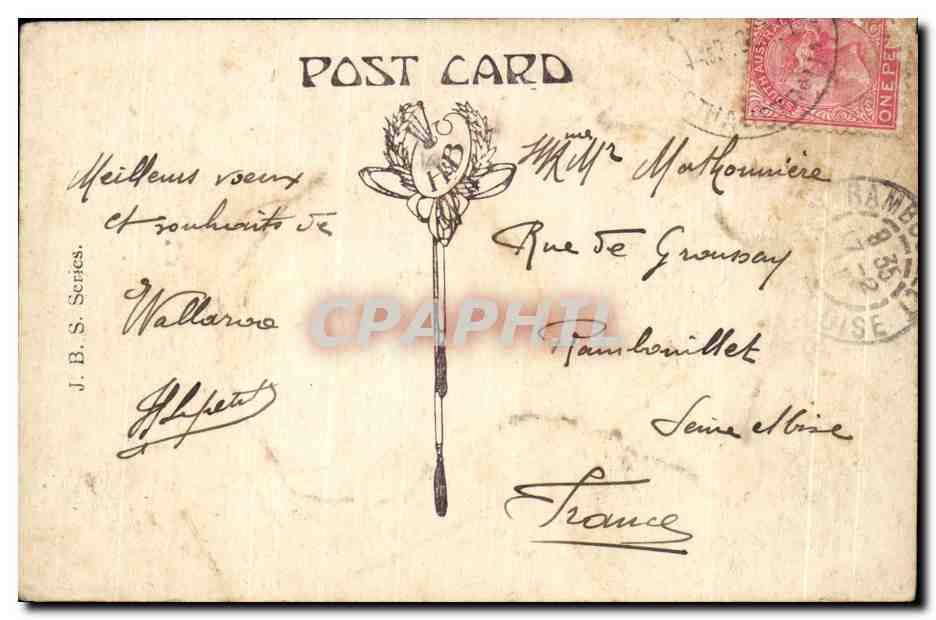 POST CARD
H&B
SOUTH AUSTRALIA
ONE PEN
Meilleurs voeux
et souhaits de
Wallaroo
HLepetit
J. B. S. Series.
Mme Mr Mathonnière
Rue de Groussay
Rambouillet
Seine et Oise
France
RAMBO
8 35
OISE
CPAPHIL